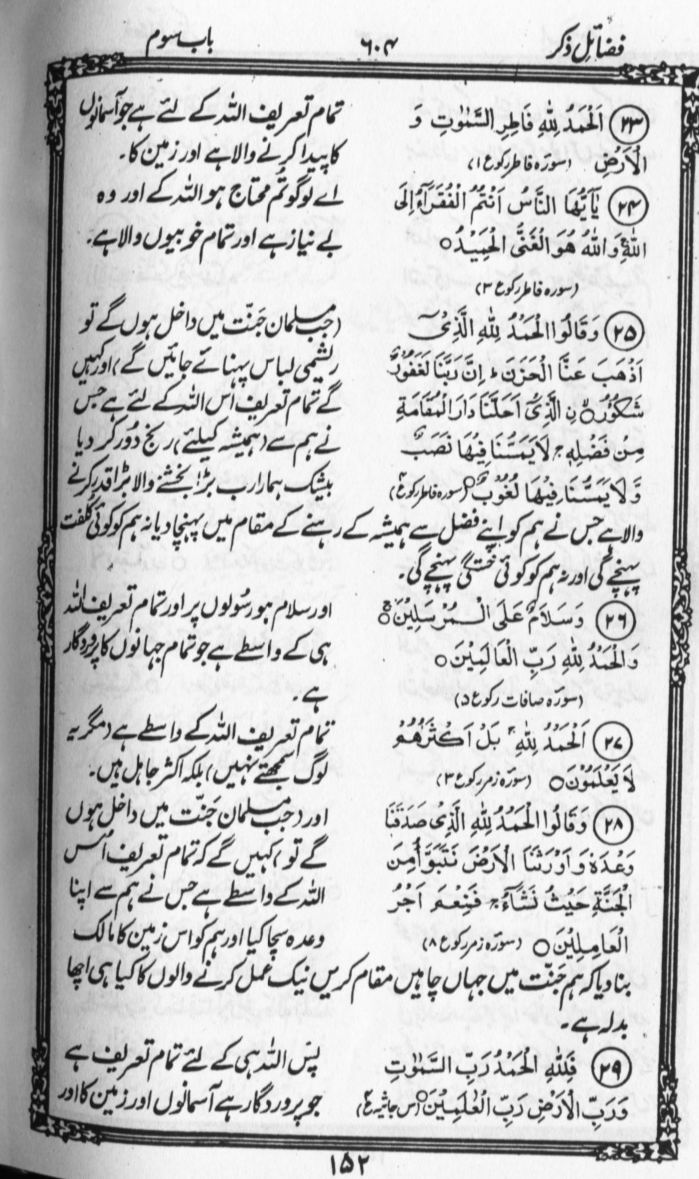 فضائل ذکر
۶۰۴
باب سوم
(۲۳) اَلْحَمْدُ لِلّٰهِ فَاطِرِ السَّمٰوٰتِ وَ
الْاَرْضِ (سورۃ فاطر رکوع ۱)
تمام تعریف اللہ کے لئے ہے جو آسمانوں
کا پیدا کرنے والا ہے اور زمین کا۔
(۲۴) يٰٓاَيُّهَا النَّاسُ اَنْتُمُ الْفُقَرَآءُ اِلَى
اللّٰهِ وَاللّٰهُ هُوَ الْغَنِيُّ الْحَمِيْدُ○
(سورہ فاطر رکوع ۳)
اے لوگو تم محتاج ہو اللہ کے اور وہ
بے نیاز ہے اور تمام خوبیوں والا ہے۔
(۲۵) وَقَالُوا الْحَمْدُ لِلّٰهِ الَّذِيْٓ
اَذْهَبَ عَنَّا الْحَزَنَ ط اِنَّ رَبَّنَا لَغَفُوْرٌ
شَكُوْرُ○ نِ الَّذِيْ اَحَلَّنَا دَارَ الْمُقَامَةِ
مِنْ فَضْلِهٖ ج لَا يَمَسُّنَا فِيْهَا نَصَبٌ
وَّلَا يَمَسُّنَا فِيْهَا لُغُوْبٌ○ (سورہ فاطر رکوع ۴)
(جب مسلمان جنت میں داخل ہوں گے تو
ریشمی لباس پہنائے جائیں گے) اور کہیں
گے تمام تعریف اس اللہ کے لئے ہے جس
نے ہم سے (ہمیشہ کیلئے) رنج دُور کر دیا
بیشک ہمارا رب بڑا بخشنے والا بڑا قدر کرنے
والا ہے جس نے ہم کو اپنے فضل سے ہمیشہ کے رہنے کے مقام میں پہنچا دیا نہ ہم کو کوئی کُلفت
پہنچے گی اور نہ ہم کو کوئی خستگی پہنچے گی۔
(۲۶) وَسَلَامٌ عَلَى الْمُرْسَلِيْنَ○
وَالْحَمْدُ لِلّٰهِ رَبِّ الْعَالَمِيْنَ○
(سورہ صافات رکوع ۵)
اور سلام ہو رسولوں پر اور تمام تعریف اللہ
ہی کے واسطے ہے جو تمام جہانوں کا پروردگار
ہے۔
(۲۷) اَلْحَمْدُ لِلّٰهِ ج بَلْ اَكْثَرُهُمْ
لَا يَعْلَمُوْنَ○ (سورہ زمر رکوع ۳)
تمام تعریف اللہ کے واسطے ہے (مگر یہ
لوگ سمجھتے نہیں) بلکہ اکثر جاہل ہیں۔
(۲۸) وَقَالُوا الْحَمْدُ لِلّٰهِ الَّذِيْ صَدَقَنَا
وَعْدَهٗ وَاَوْرَثَنَا الْاَرْضَ نَتَبَوَّاُ مِنَ
الْجَنَّةِ حَيْثُ نَشَآءُ ج فَنِعْمَ اَجْرُ
الْعَامِلِيْنَ○ (سورہ زمر رکوع ۸)
اور (جب مسلمان جنت میں داخل ہوں
گے تو) کہیں گے کہ تمام تعریف اُس
اللہ کے واسطے ہے جس نے ہم سے اپنا
وعدہ سچا کیا اور ہم کو اس زمین کا مالک
بنا دیا کہ ہم جنت میں جہاں چاہیں مقام کریں نیک عمل کرنے والوں کا کیا ہی اچھا
بدلہ ہے۔
(۲۹) فَلِلّٰهِ الْحَمْدُ رَبِّ السَّمٰوٰتِ
وَرَبِّ الْاَرْضِ رَبِّ الْعٰلَمِيْنَ○ (س جاثیہ ع)
پس اللہ ہی کے لئے تمام تعریف ہے
جو پروردگار ہے آسمانوں اور زمین کا اور
۱۵۲